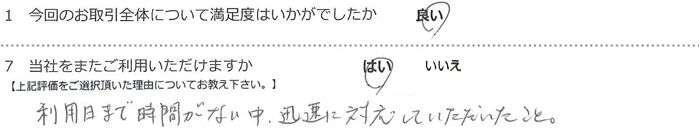 1 今回のお取引全体について満足度はいかがでしたか 良い
7 当社をまたご利用いただけますか はい いいえ
【上記評価をご選択頂いた理由についてお教え下さい。】
利用日まで時間がない中、迅速に対応していただいたこと。